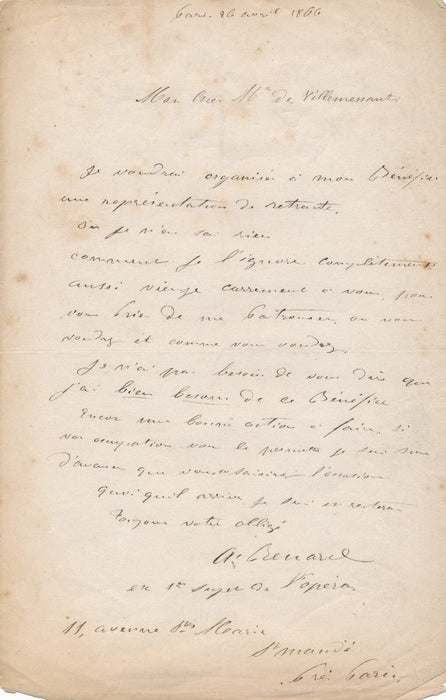 Paris 26 avril 1866
Mon cher Mr de Villemessant
Je voudrai organiser à mon Bénéfice
une représentation de retraite.
ou je n'en sai rien
comment je l'ignore complettement
aussi vienje carrement a vous, pour
vous prie de me patroner, ou vous
voudrez et comme vous voudrez
Je n'ai pas besoin de vous dire que
j'ai bien besoin de ce Bénéfice
Encor une bonne action a faire, si
vos ocupation vous le permette je suis sur
d'avance que vous saisirez l'occasion
quoiqu'il arrive je suis et resterai
Toujour votre obligé
en 1er sujet de l'opéra
11, avenue Ste Marie
St mandé
Près Paris